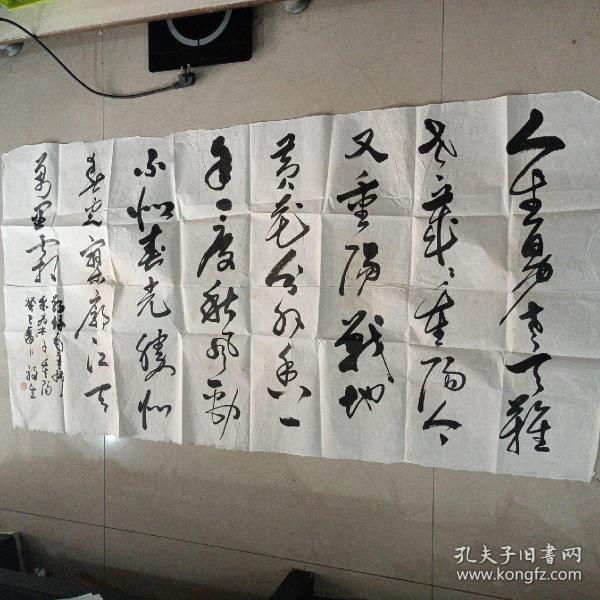 人生易老天难
老岁岁重阳今
又重阳战地
黄花分外香一
年一度秋风劲
不似春光胜似
春光寥廓江天
万里霜
孔夫子旧书网
www.kongfz.com